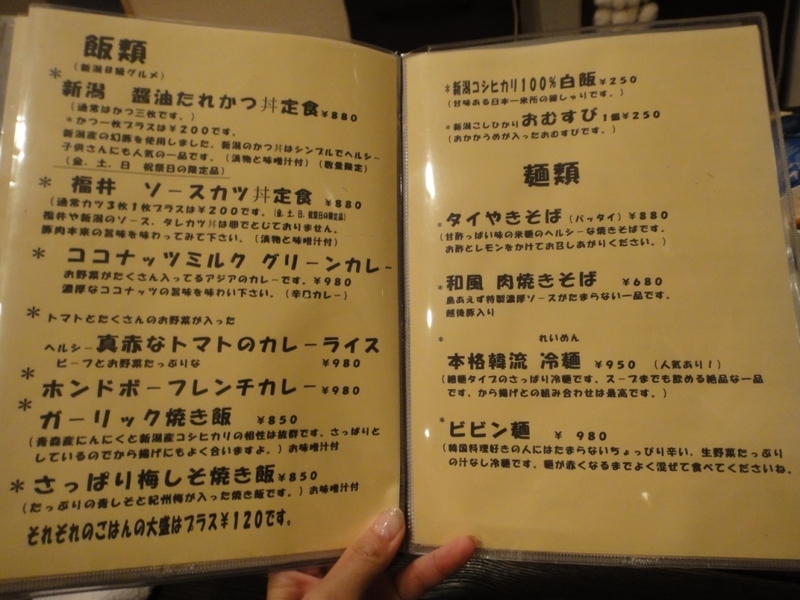 飯類
(新潟B級グルメ)
*新潟 醤油たれかつ丼定食¥880
(通常はかつ三枚です。)
*かつ一枚プラスは¥200です。
新潟産の幻豚を使用しました。新潟のかつ丼はシンプルでヘルシー
子供さんにも人気の一品です。(漬物と味噌汁付)(数量限定)
(金、土、日 祝祭日の限定品)
*福井 ソースカツ丼定食 ¥880
(通常カツ3枚1枚プラスは¥200です。(金、土、日、祝祭日の限定品)
福井や新潟のソース、タレカツ丼は卵でとじておりません。
豚肉本来の旨味を味わってみて下さい。(漬物と味噌汁付)
*ココナッツミルク グリーンカレー
お野菜がたくさん入ってるアジアのカレーです。¥980
濃厚なココナッツの旨味を味わい下さい。(辛口カレー)
*トマトとたくさんのお野菜が入った
ヘルシー真赤なトマトのカレーライス
ビーフとお野菜たっぷりな ¥980
*ホンドボーフレンチカレー¥980
*ガーリック焼き飯 ¥850
(青森産にんにくと新潟産コシヒカリの相性は抜群です。さっぱりと
しているのでから揚げにもよく合いますよ。)お味噌汁付
*さっぱり梅しそ焼き飯¥850
(たっぷりの青しそと紀州梅が入った焼き飯です。)お味噌汁付
それぞれのごはんの大盛はプラス¥120です。
*新潟コシヒカリ100%白飯¥250
(甘味ある日本一米所の銀しゃりです。)
*新潟こしひかりおむすび1個¥250
(おかかうめが入ったおむすびです。)
麺類
*タイやきそば(パッタイ)¥880
(甘酢っぱい味の米麺のヘルシーな焼きそばです。
お酢とレモンをかけてお召しあがりください。)
*和風 肉焼きそば ¥680
鳥あえず特製濃厚ソースがたまらない一品です。
越後豚入り
*
れいめん
本格韓流 冷麺 ¥950 (人気あり!)
(細麺タイプのさっぱり冷麺です。スープまでも飲める絶品な一品
です、から揚げとの組み合わせは最高です。)
*ビビン麺 ¥ 980
(韓国料理好きの人にはたまらないちょっぴり辛い、生野菜たっぷり
の汁なし冷麺です。麺が赤くなるまでよく混ぜて食べてくださいね。